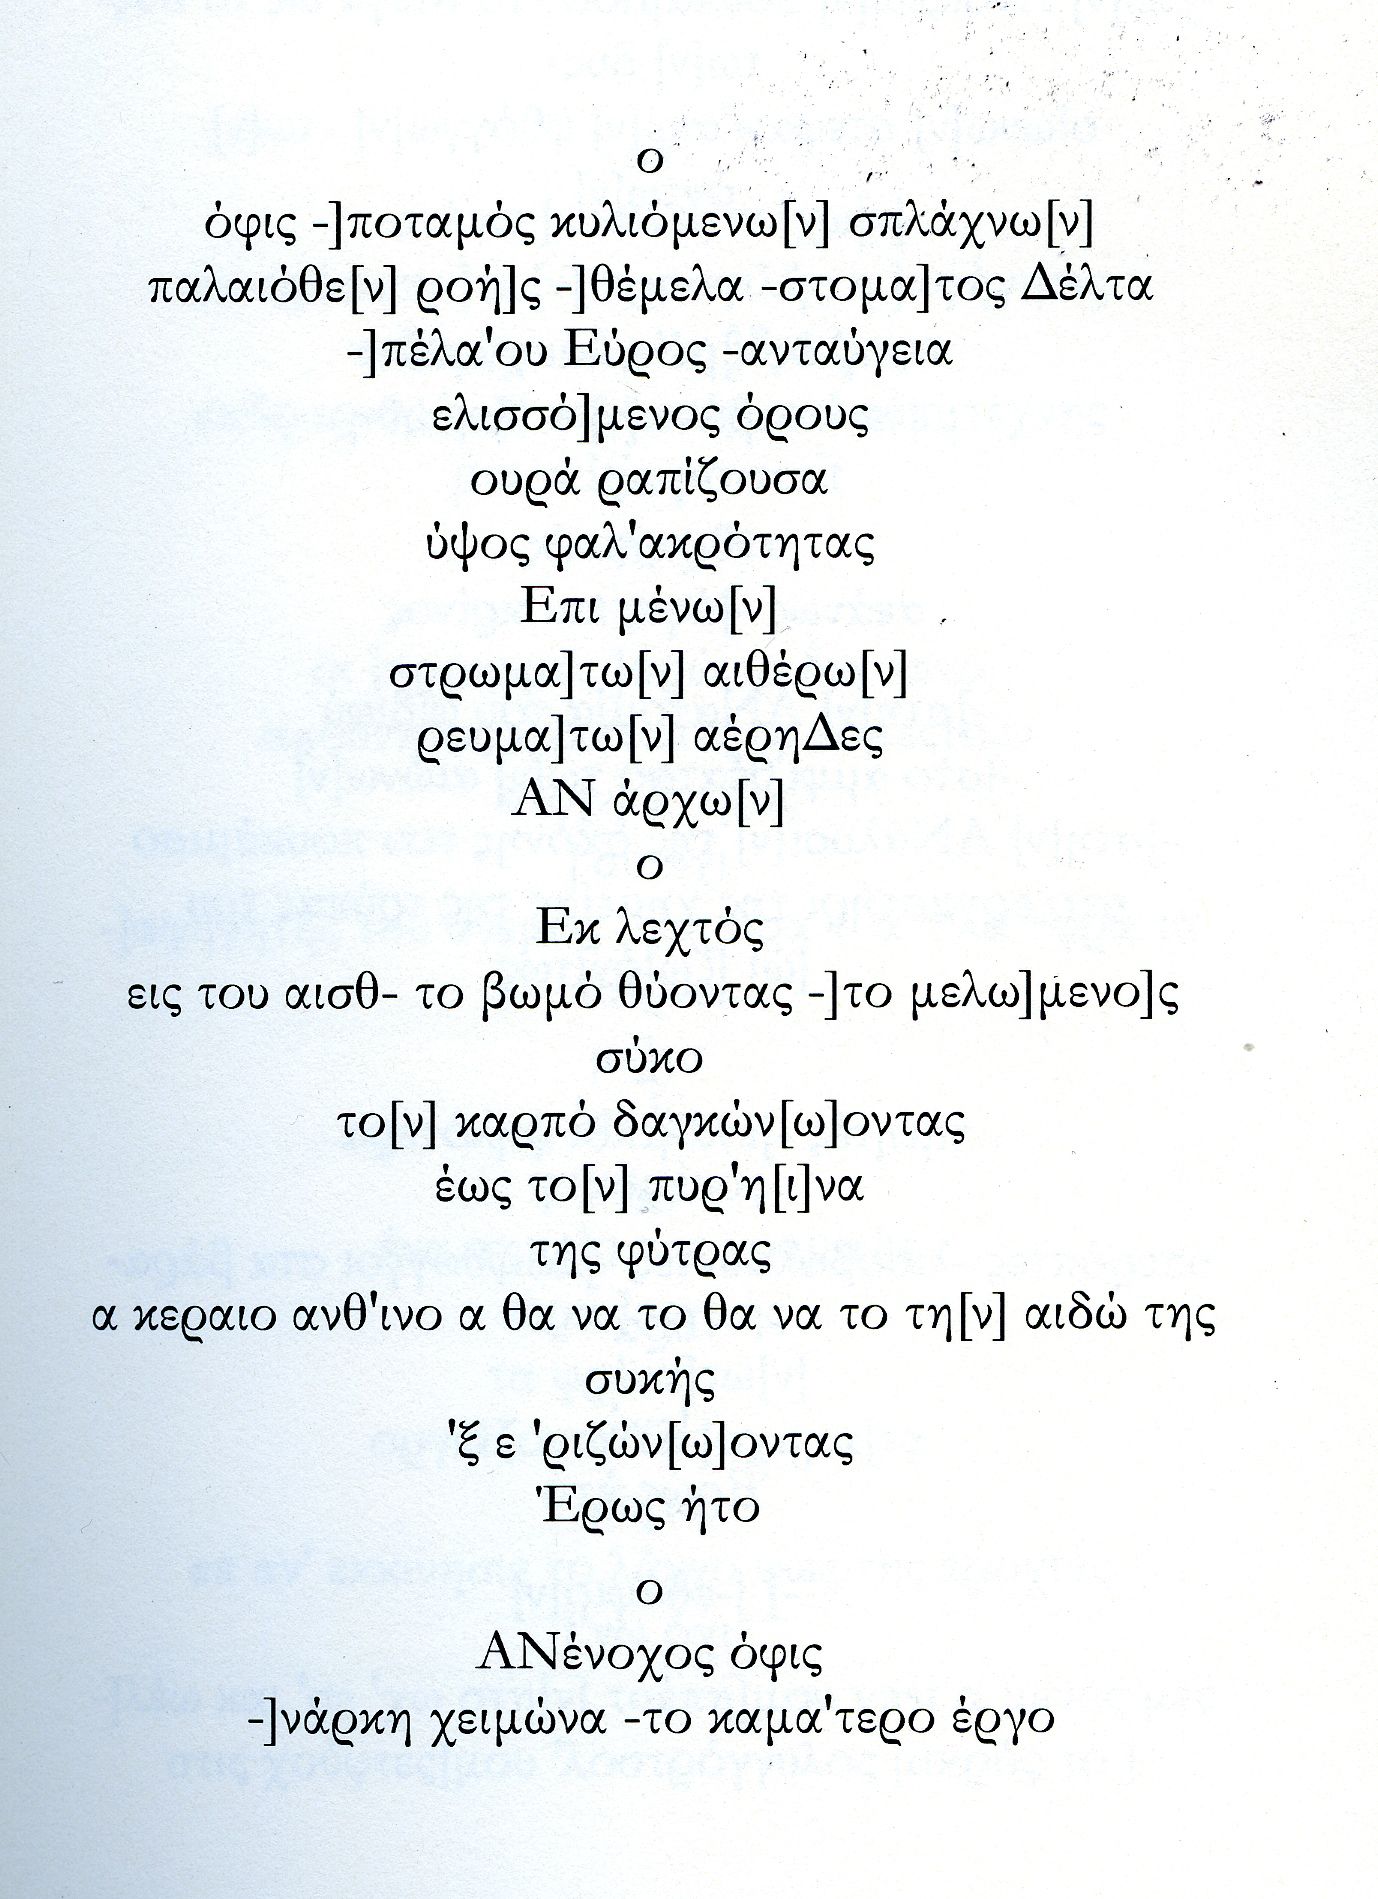 ο
όφις -]ποταμός κυλιόμενω[ν] σπλάχνω[ν]
παλαιόθε[ν] ροή]ς -]θέμελα -στομα]τος Δέλτα
-]πέλα'ου Εύρος -ανταύγεια
ελισσό]μενος όρους
ουρά ραπίζουσα
ύψος φαλ'ακρότητας
Επι μένω[ν]
στρωμα]τω[ν] αιθέρω[ν]
ρευμα]τω[ν] αέρηΔες
ΑΝ άρχω[ν]
ο
Εκ λεχτός
εις του αισθ- το βωμό θύοντας -]το μελω]μενο]ς
σύκο
το[ν] καρπό δαγκών[ω]οντας
έως το[ν] πυρ'η[ι]να
της φύτρας
α κεραιο ανθ'ινο α θα να το θα να το τη[ν] αιδώ της
συκής
'ξ ε 'ριζών[ω]οντας
Έρως ήτο
ο
ΑΝένοχος όφις
-]νάρκη χειμώνα -το καμα'τερο έργο